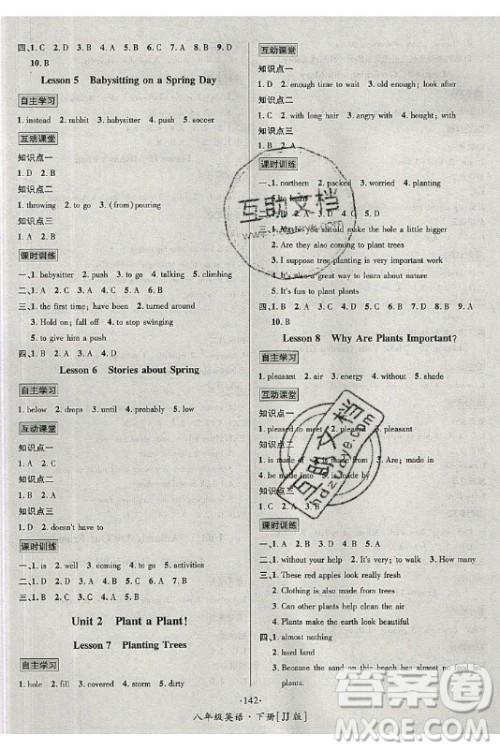 四、1. C 2. D 3. A 4. D 5. B 6. C 7. A 8. D 9. C
10. B
Lesson 5 Babysitting on a Spring Day
自主学习
1. instead 2. rabbit 3. babysitter 4. push 5. soccer
互动课堂
知识点一
1. D 2. A
知识点二
1. throwing 2. to go 3. (from) pouring
知识点三
1. B 2. A
课时训练
一、1. babysitter 2. push 3. rabbit 4. talking 5. climbing
二、1. A 2. C 3. A 4. C 5. B
三、1. the first time; have been 2. turned around
3. Hold on; fall off 4. stop swinging
5. to give him a push
Lesson 6 Stories about Spring
自主学习
1. below 2. drops 3. until
互动课堂
知识点一
1. D 2. A
知识点二
1. D 2. C
知识点三
1. D 2. doesn't have to
课时训练
一、1. is 2. well 3. coming 4. to go 5. activities
二、1. B 2. A 3. B 4. D 5. A
三、1. D 2. A 3. D 4. C
Unit 2 Plant a Plant!
Lesson 7 Planting Trees
自主学习
1. hole 2. fill 3. covered 4. storm 5. dirty
互动课堂
知识点一
1. D 2. enough time to wait 3. old enough; look after
知识点二
1. C 2. with long hair 3. with
知识点三
1. B 2. of
课时训练
一、1. northern 2. packed 3. worried 4. planting
5. to leave
2. A 3. D 4. A 5. C
you should make the hole a little bigger
2. There are also ways to plant trees
3. I think planting trees is very important work
4. It's also a great way to learn about nature
5. It's fun to plant plants
四、1. C 2. A 3. B 4. D 5. C 6. A 7. B 8. D 9. C
10. B
Lesson 8 Why Are Plants Important?
自主学习
1. pleased 2. air 3. energy 4. meat 5. without
互动课堂
知识点一
1. pleased to meet 2. is pleased with
知识点二
1. is made of 2. is made
知识点三
课时训练
2. Clothing is also made from cotton
3. Plants also help clean the air
5. Plants make the earth look beautiful
四、1. almost nothing
2. hard land
3. Because the sand on the desert was easily moved
·142·
八年级英语·下册[JJ版]
互助文档
互助文档
hdzuoye.com